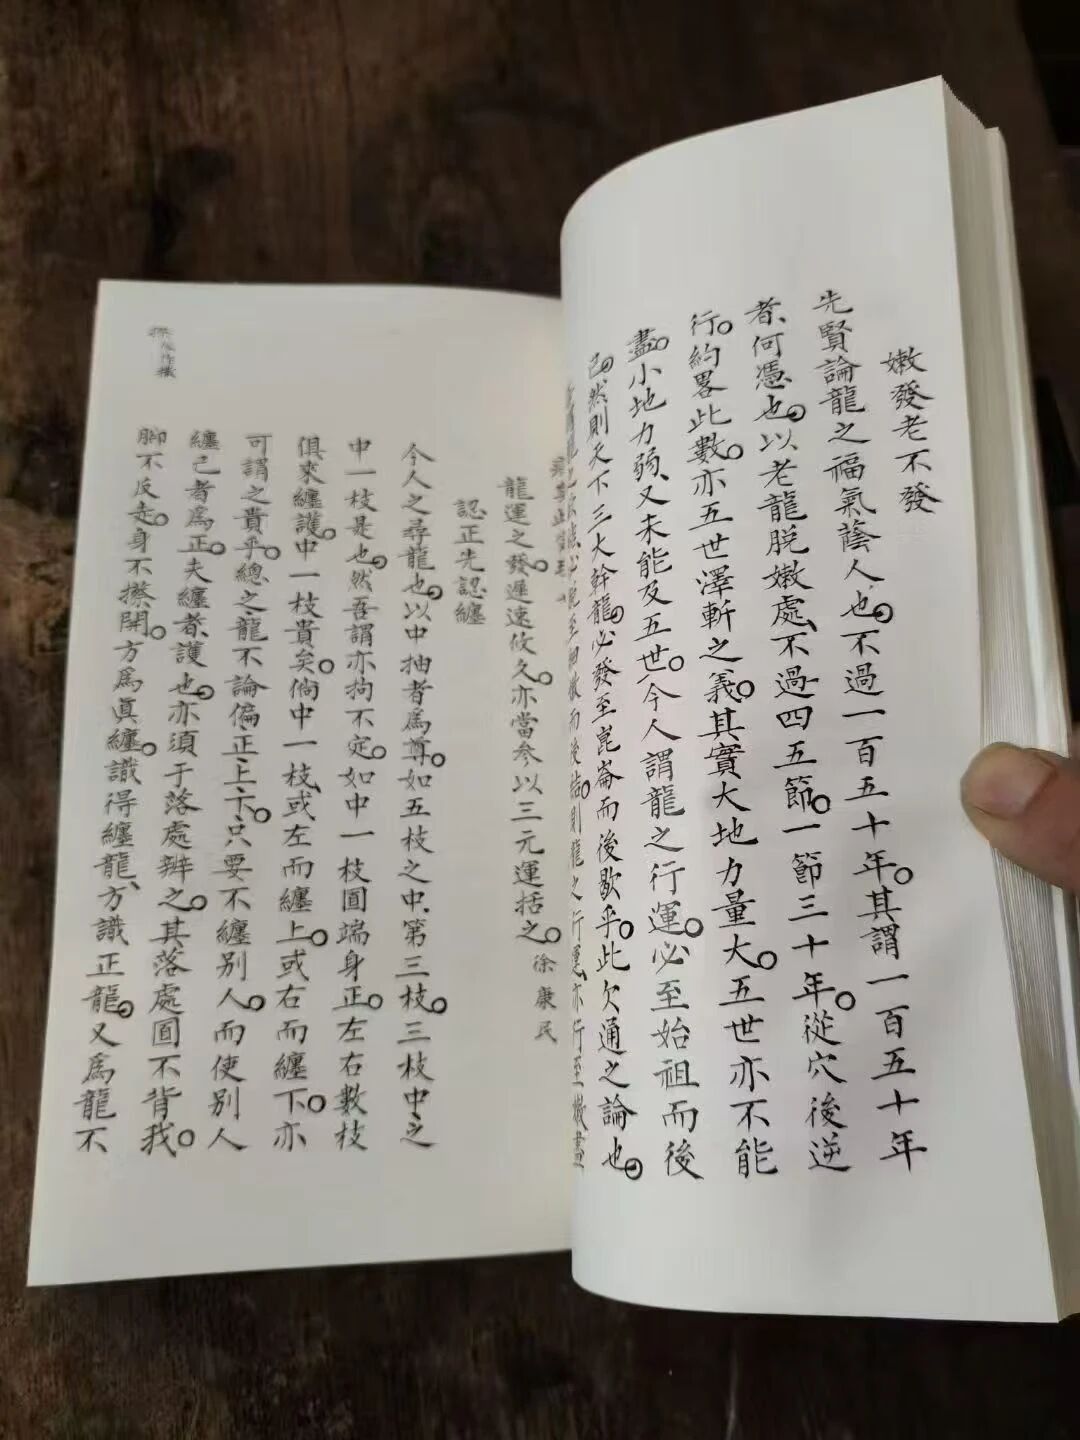 嫩發老不發
先賢論龍之福氣蔭人、也。不過一百五十年。其謂一百五十年
者、何憑也。以老龍脫嫩處、不過四五節。一節三十年。從穴後逆
行。約畧此數。亦五世澤斬之義。其實大地力量大。五世亦不能
盡。小地力弱、又未能及五世。今人謂龍之行運。必至始祖而後
已。然則天下三大幹龍。必發至崑崙而後歇乎。此欠通之論也。
而後結。則龍之行運、亦行至嫩盡
龍運之發。遲速攸久。亦當參以三元運括之。徐康民
認正先認纏
今人之尋龍也。以中抽者爲尊。如五枝之中、第三枝。三枝中之
中一枝是也。然吾謂亦拘不定。如中一枝圓端身正。左右數枝
俱來纏護。中一枝貴矣。倘中一枝、或左而纏上。或右而纏下。亦
可謂之貴乎。總之、龍不論偏、正、上、下。只要不纏別人。而使別人
纏己者爲正。夫纏者、護也。亦須于落處辨之。其落處面不背我。
脚不反走。身不㩇開。方爲眞纏。識得纏龍、方識正龍。又爲龍不